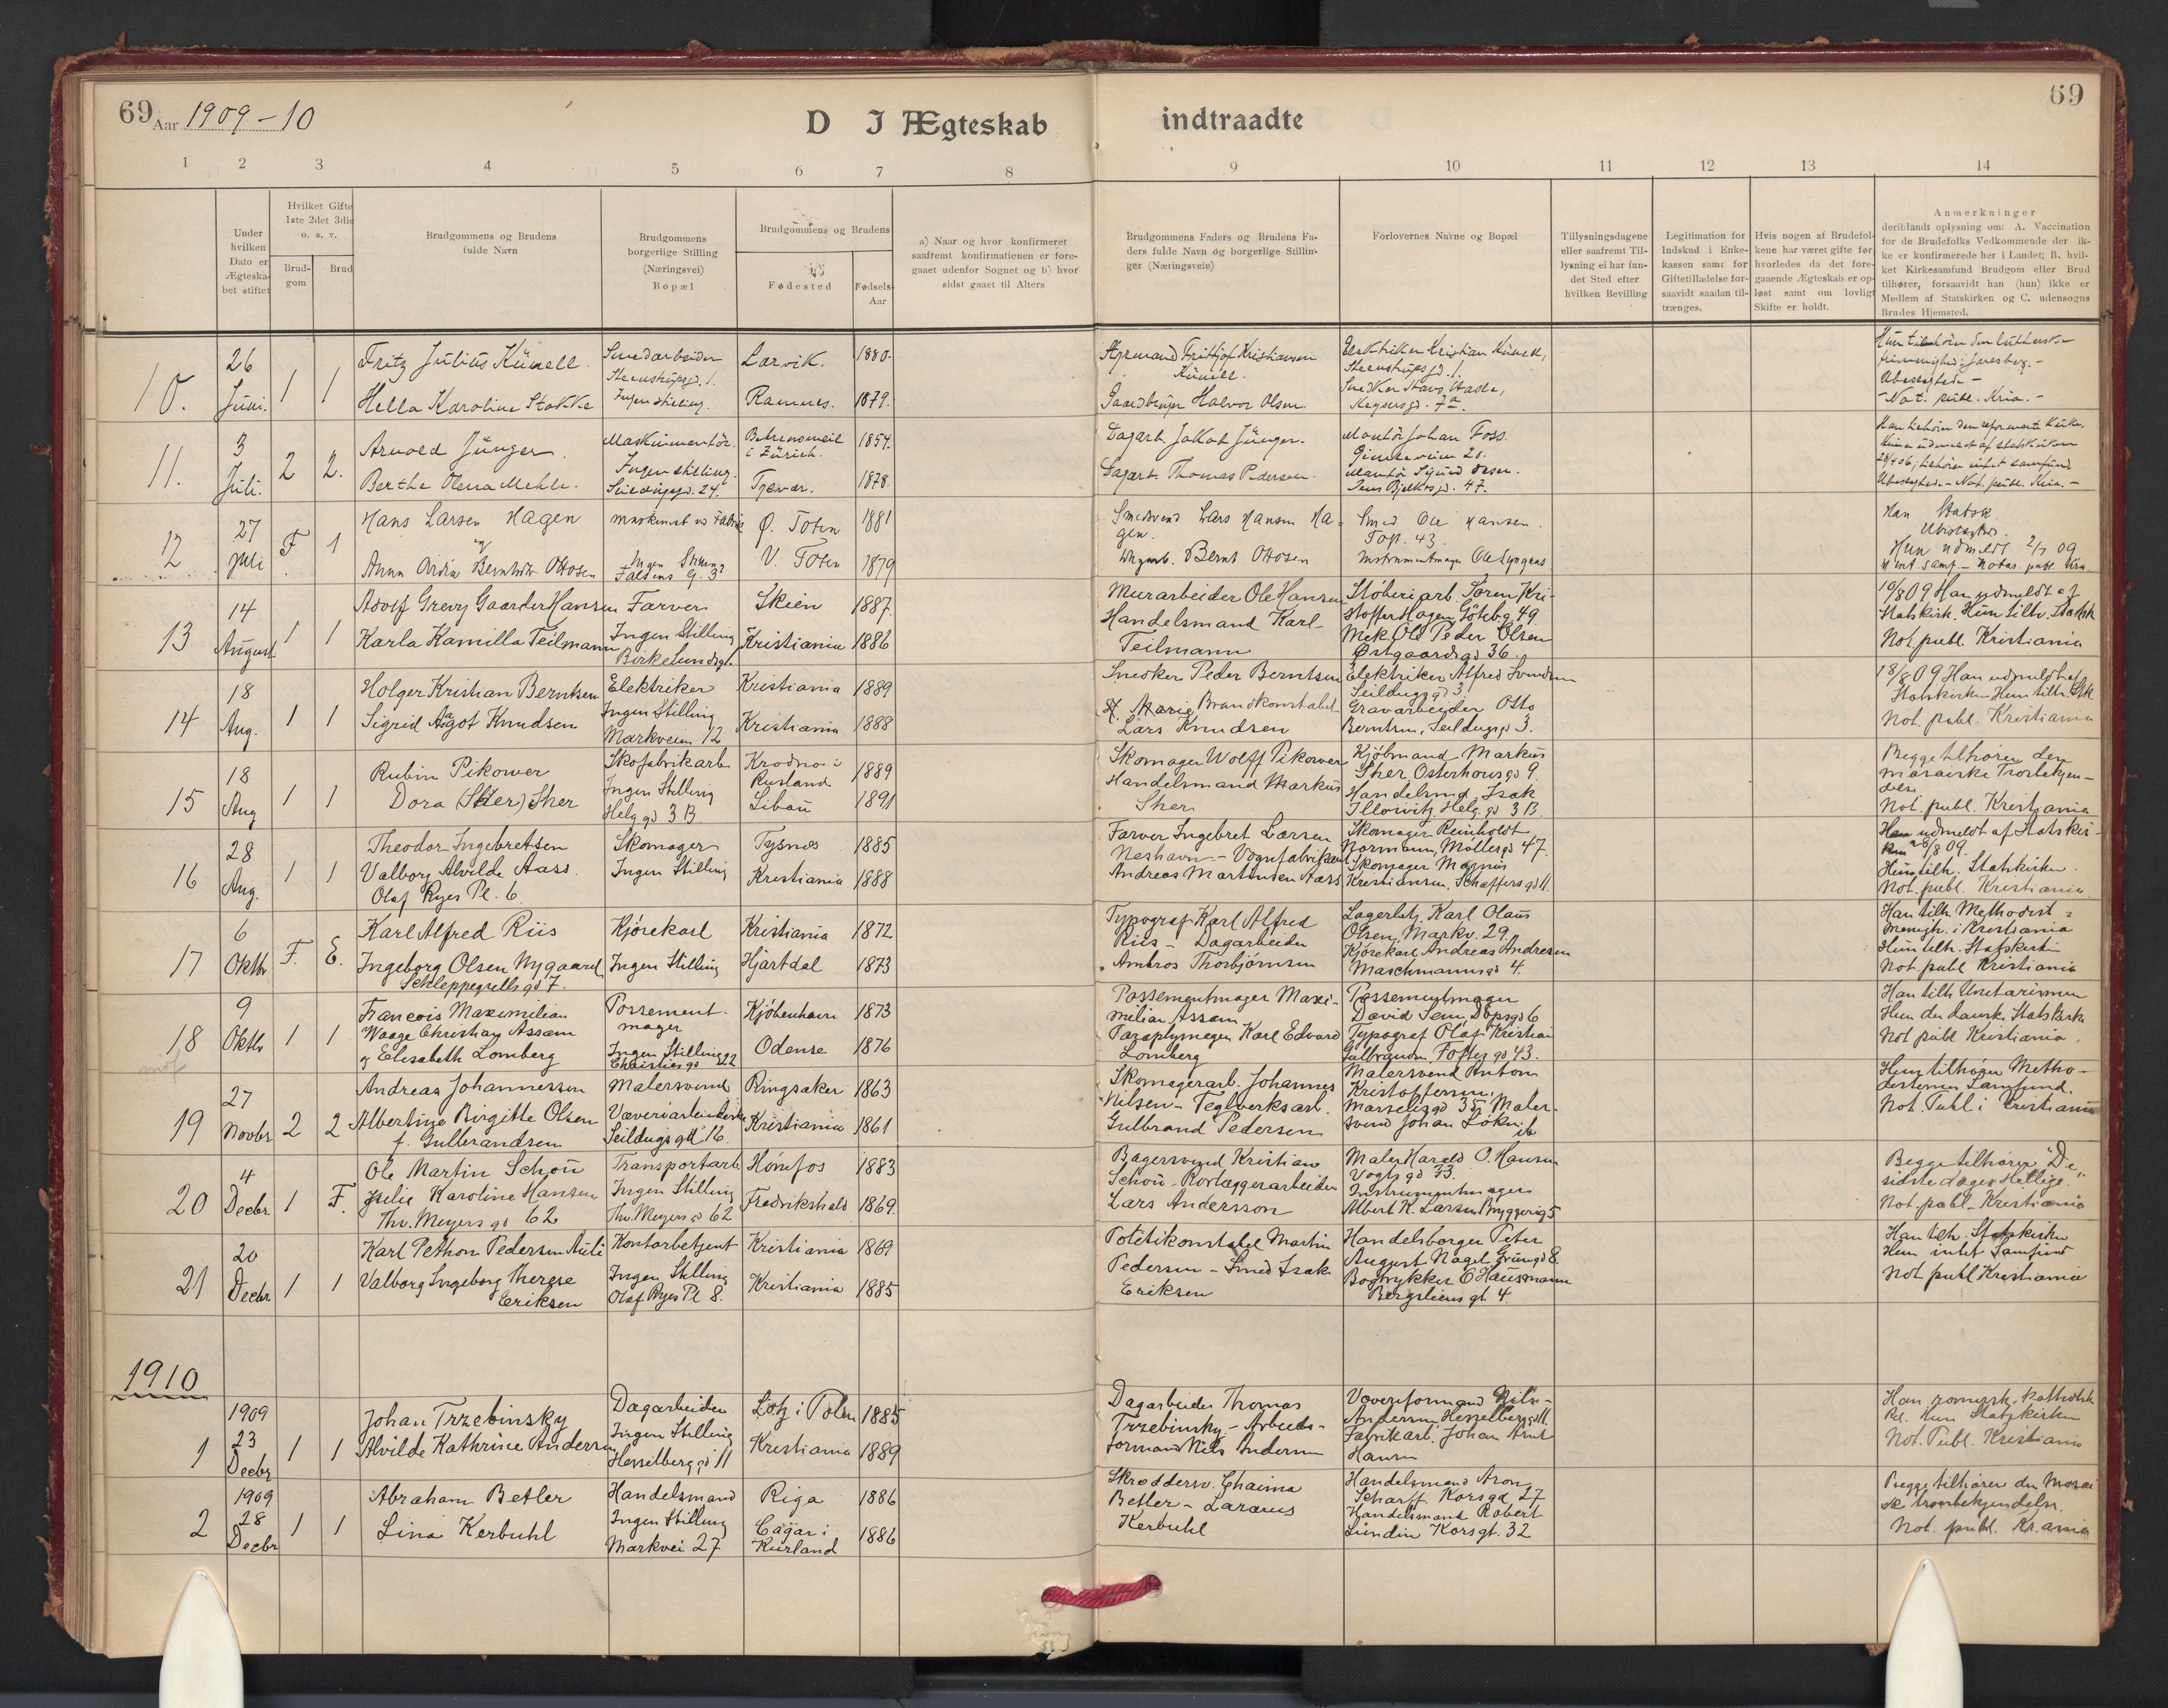 69 Aar 1909-10
D I Ægteskab indtraadte
69
1 2 3 4 5 6 7 8 9 10 11 12 13 14
Under hvilken Dato er Ægteska-bet stiftet
Hvilket Gifte 1ste 2det 3die o. s. v.
Brud-gom
Brud
Brudgommens og Brudens fulde Navn
Brudgommens borgerlige Stilling (Næringsvei) Bopæl
Brudgommens og Brudens
Fødested
Fødsels-Aar
a) Naar og hvor konfirmeret saafremt konfirmationen er fore-gaaet udenfor Sognet og b) hvor sidst gaaet til Alters
Brudgommens Faders og Brudens Fa-ders fulde Navn og borgerlige Stillin-ger (Næringsveie)
Forlovernes Navne og Bopæl
Tillysningsdagene eller saafremt Til-lysning ei har fun-det Sted efter hvilken Bevilling
Legitimation for Indskud i Enke-kassen samt for Giftetilladelse for-saavidt saadan til-trænges.
Hvis nogen af Brudefol-kene har været gifte før hvorledes da det fore-gaaende Ægteskab er op-løst samt om lovligt Skifte er holdt.
Anmerkninger
deriblandt oplysning om: A. Vaccination for de Brudefolks Vedkommende der ik-ke er konfirmerede her i Landet; B. hvil-ket Kirkesamfund Brudgom eller Brud tilhører, forsaavidt han (hun) ikke er Medlem af Statskirken og C. udensogns Brudes Hjemsted.
10. 26 Juni. 1 1
Fritz Julius Künell. Smedarbeider Steenstrupsgd. 1. Larvik. 1880.
Hella Karoline Stokke Ingen stilling. Ramnes. 1879.
Fritjof Kristiansen Künell.
Gaardbruger Halvor Olsen.
Elektriker Kristian Künell, Steenstrupsgd. 1.
Snedker Hans Hasle, Keysersgd. 7a.
Hun tilhører den lutherske frimenighed i Jarlsberg. -
Ubeslegtede -
Not. publ. Kria. -
11. 3 Juli. 2 2.
Arnold Jünger. Maskinmontør. i Zürich. 1854.
Berthe Olena Mehle. Ingen stilling. Seildugsgd. 24. Tysvær. 1878.
Dagarb. Jakob Jünger.
Dagarb. Thomas Pedersen.
Montør Johan Foss.
Montør Sigurd Olsen. Jens Bjelkesgd. 47.
Han tilhører den reformerte kirke.
Hun udmeldt af statskirken 28/4 06; tilhører intet samfund.
Ubeslegtede - Not. publ. Kria. -
12 27 Juli F 1
Hans Larsen Hagen Maskinist ved Fabrik Ø. Toten 1881
og
Anna Ardia Bernhardin Ottosen Ingen Stilling Falsens G. 3 V. Toten 1879
Smedsvend Lars Hansen Hagen.
Bernt Ottosen
Smed Ole Hansen. Toft. 43
Instrumentmager Ole Lyngaas
Han Statsk.
Ubeslegtede.
Hun udmeldt 2/7 09
intet samf. - Notar. publ. Kra.
13 14 August 1 1
Adolf Grevy Gaarder Hansen Farver Skien 1887
Karla Kamilla Teilmann Ingen Stilling Birkelundsgt. Kristiania 1886
Murarbeider Ole Hansen
Handelsmand Karl Teilmann
Støberiarb. Søren Kristoffer Hagen Göteb.g 49.
Mek. Ole Peder Olsen Østgaardsgd 36.
10/8 09 Han udmeldt af Statskirk. Hun tilh. Statsk
Not. publ. Kristiania
14 18 Aug. 1 1
Holger Kristian Berntsen Elektriker Kristiania 1889
Sigrid Aagot Knudsen Ingen Stilling Markveien 12 Kristiania 1888
Snedker Peder Berntsen
Brandkonstabel Lars Knudsen
Elektriker Alfred Svendsen Seildugsgd 3
Gravarbeider Otto Berntsen, Seildugsgd 3.
18/8 09 Han udmeldt af Statskirken Hun tilh. Stk
Not. publ. Kristiania
15 18 Aug 1 1
Rubin Pikower Skofabrikarb. Krodno i Rusland 1889
Dora (Sher) Sher Ingen Stilling Helg.gd 3 B. Libau 1891
Skomager Wolff Pikower
Handelsmand Markus Sher
Kjøbmand Markus Sher Osterhousgd 9.
Handelsmd. Isak Illowitz. Helg.gd 3 B.
Begge tilhører den mosaiske Trosbekjendelse
Not. publ. Kristiania
16 28 Aug. 1 1
Theodor Ingebretsen Skomager Tysnes 1885
Valborg Alvilde Aass Ingen Stilling Kristiania 1888
Olaf Ryes Pl. 6.
Farver Ingebret Larsen Neshavn - Vognfabrikant
Andreas Martinsen Aass
Skomager Reinholdt Normann, Møllergd 47.
Skomager Magnus Kristiansen, Schæffersgd 11.
Han udmeldt af Statskirken 28/8 09.
Hun tilh. Statskirken.
Not. publ. Kristiania
17 6 Oktbr F. E.
Karl Alfred Riis Kjørekarl Kristiania 1872
Ingeborg Olsen Nygaard Ingen Stilling Hjartdal 1873
Schleppegrellsgd 7.
Typograf Karl Alfred Riis - Dagarbeider
Ambros Thorbjørnsen
Lagerbetj. Karl Olaus Olsen, Markv. 29.
Kjørekarl Andreas Andresen Maschmannsgd 4.
Han tilh. Methodist menigh. i Kristiania
Hun tilh. Statskirken
Not. publ Kristiania
18 9 Oktbr 1 1
Francois Maximilian Waage Christian Assam Possementmager Kjöbenhavn 1873
og Elisabeth Lomberg Ingen Stilling Christiesgd 22 Odense 1876
Possementmager Maximilian Assam
Paraplymager Karl Edvard Lomberg
Possementmager David Senn, Dopsgd 6
Typograf Olaf Kristian Gulbransen, Foftes gd 43.
Han tilh Unitarismen
Hun den danske Statskirke
Not publ Kristiania.
19 27 Novbr 2 2
Andreas Johannessen Malersvend Ringsaker 1863
Albertine Birgitte Olsen f. Gulbrandsen Væveriarbeiderske Seildugsgd 16. Kristiania 1861
Skomagerarb. Johannes Nilsen - Teglverksarb.
Gulbrand Pedersen
Malersvend Anton Kristoffersen, Marselisgd 35, Malersvend Johan Løken ib
Hun tilhører Methodisternes Samfund.
Not. Publ. i Kristiania
20 4 Decbr 1 F.
Ole Martin Schou Transportarb. Hønefos 1883
Julie Karoline Hansen Ingen Stilling Fredrikshald 1869.
Thv. Meyers gd 62 Thv. Meyers gd 62
Bagersvend Kristian Schou - Rorlæggerarbeider
Lars Andersson
Maler Harald O. Hansen Vogts gd 73.
Instrumentmager Albert K. Larsen Bryggerig 5
Begge tilhører "De sidste dages Hellige."
Not. publ. Kristiania
21 20 Decbr 1 1
Karl Pethon Pedersen Auli Kontorbetjent Kristiania 1869
Valborg Ingeborg Therese Eriksen Ingen Stilling Olaf Ryes Pl 8. Kristiania 1885
Politikonstabel Martin Pedersen - Smed Isak Eriksen
Handelsborger Peter August Nagel Grüngd 8.
Bogtrykker C Hausmann Bergsliens gt 4.
Han tilh. Statskirken
Hun intet Samfund
Not publ Kristiania
1910
1 1909 23 Decbr 1 1
Johan Trzebinsky Dagarbeider Lotz i Polen 1885
Alvilde Kathrine Andersen Ingen Stilling Hesselberggd 11 Kristiania 1889
Dagarbeider Thomas Trzebinsky - Arbeidsformand Nils Andersen
Væveriformand Nils Andersen, Hesselberggd 11
Fabrikarb. Johan Arnt Hansen
Han romersk. katholsk Rel. Hun Statskirken
Not. Publ. Kristiania
2 1909 28 Decbr 1 1
Abraham Betler Handelsmand Riga 1886
Lina Kerbuhl Ingen Stilling Markvei 27 Kurland 1886
Skræddersv. Chaima Betler - Lazarus Kerbuhl
Handelsmand Aron Scharff. Korsgd 27
Handelsmand Robert Lundin Korsgt. 32
Begge tilhører den Mosaiske trosbekjendelse.
Not. publ. Kr.ania